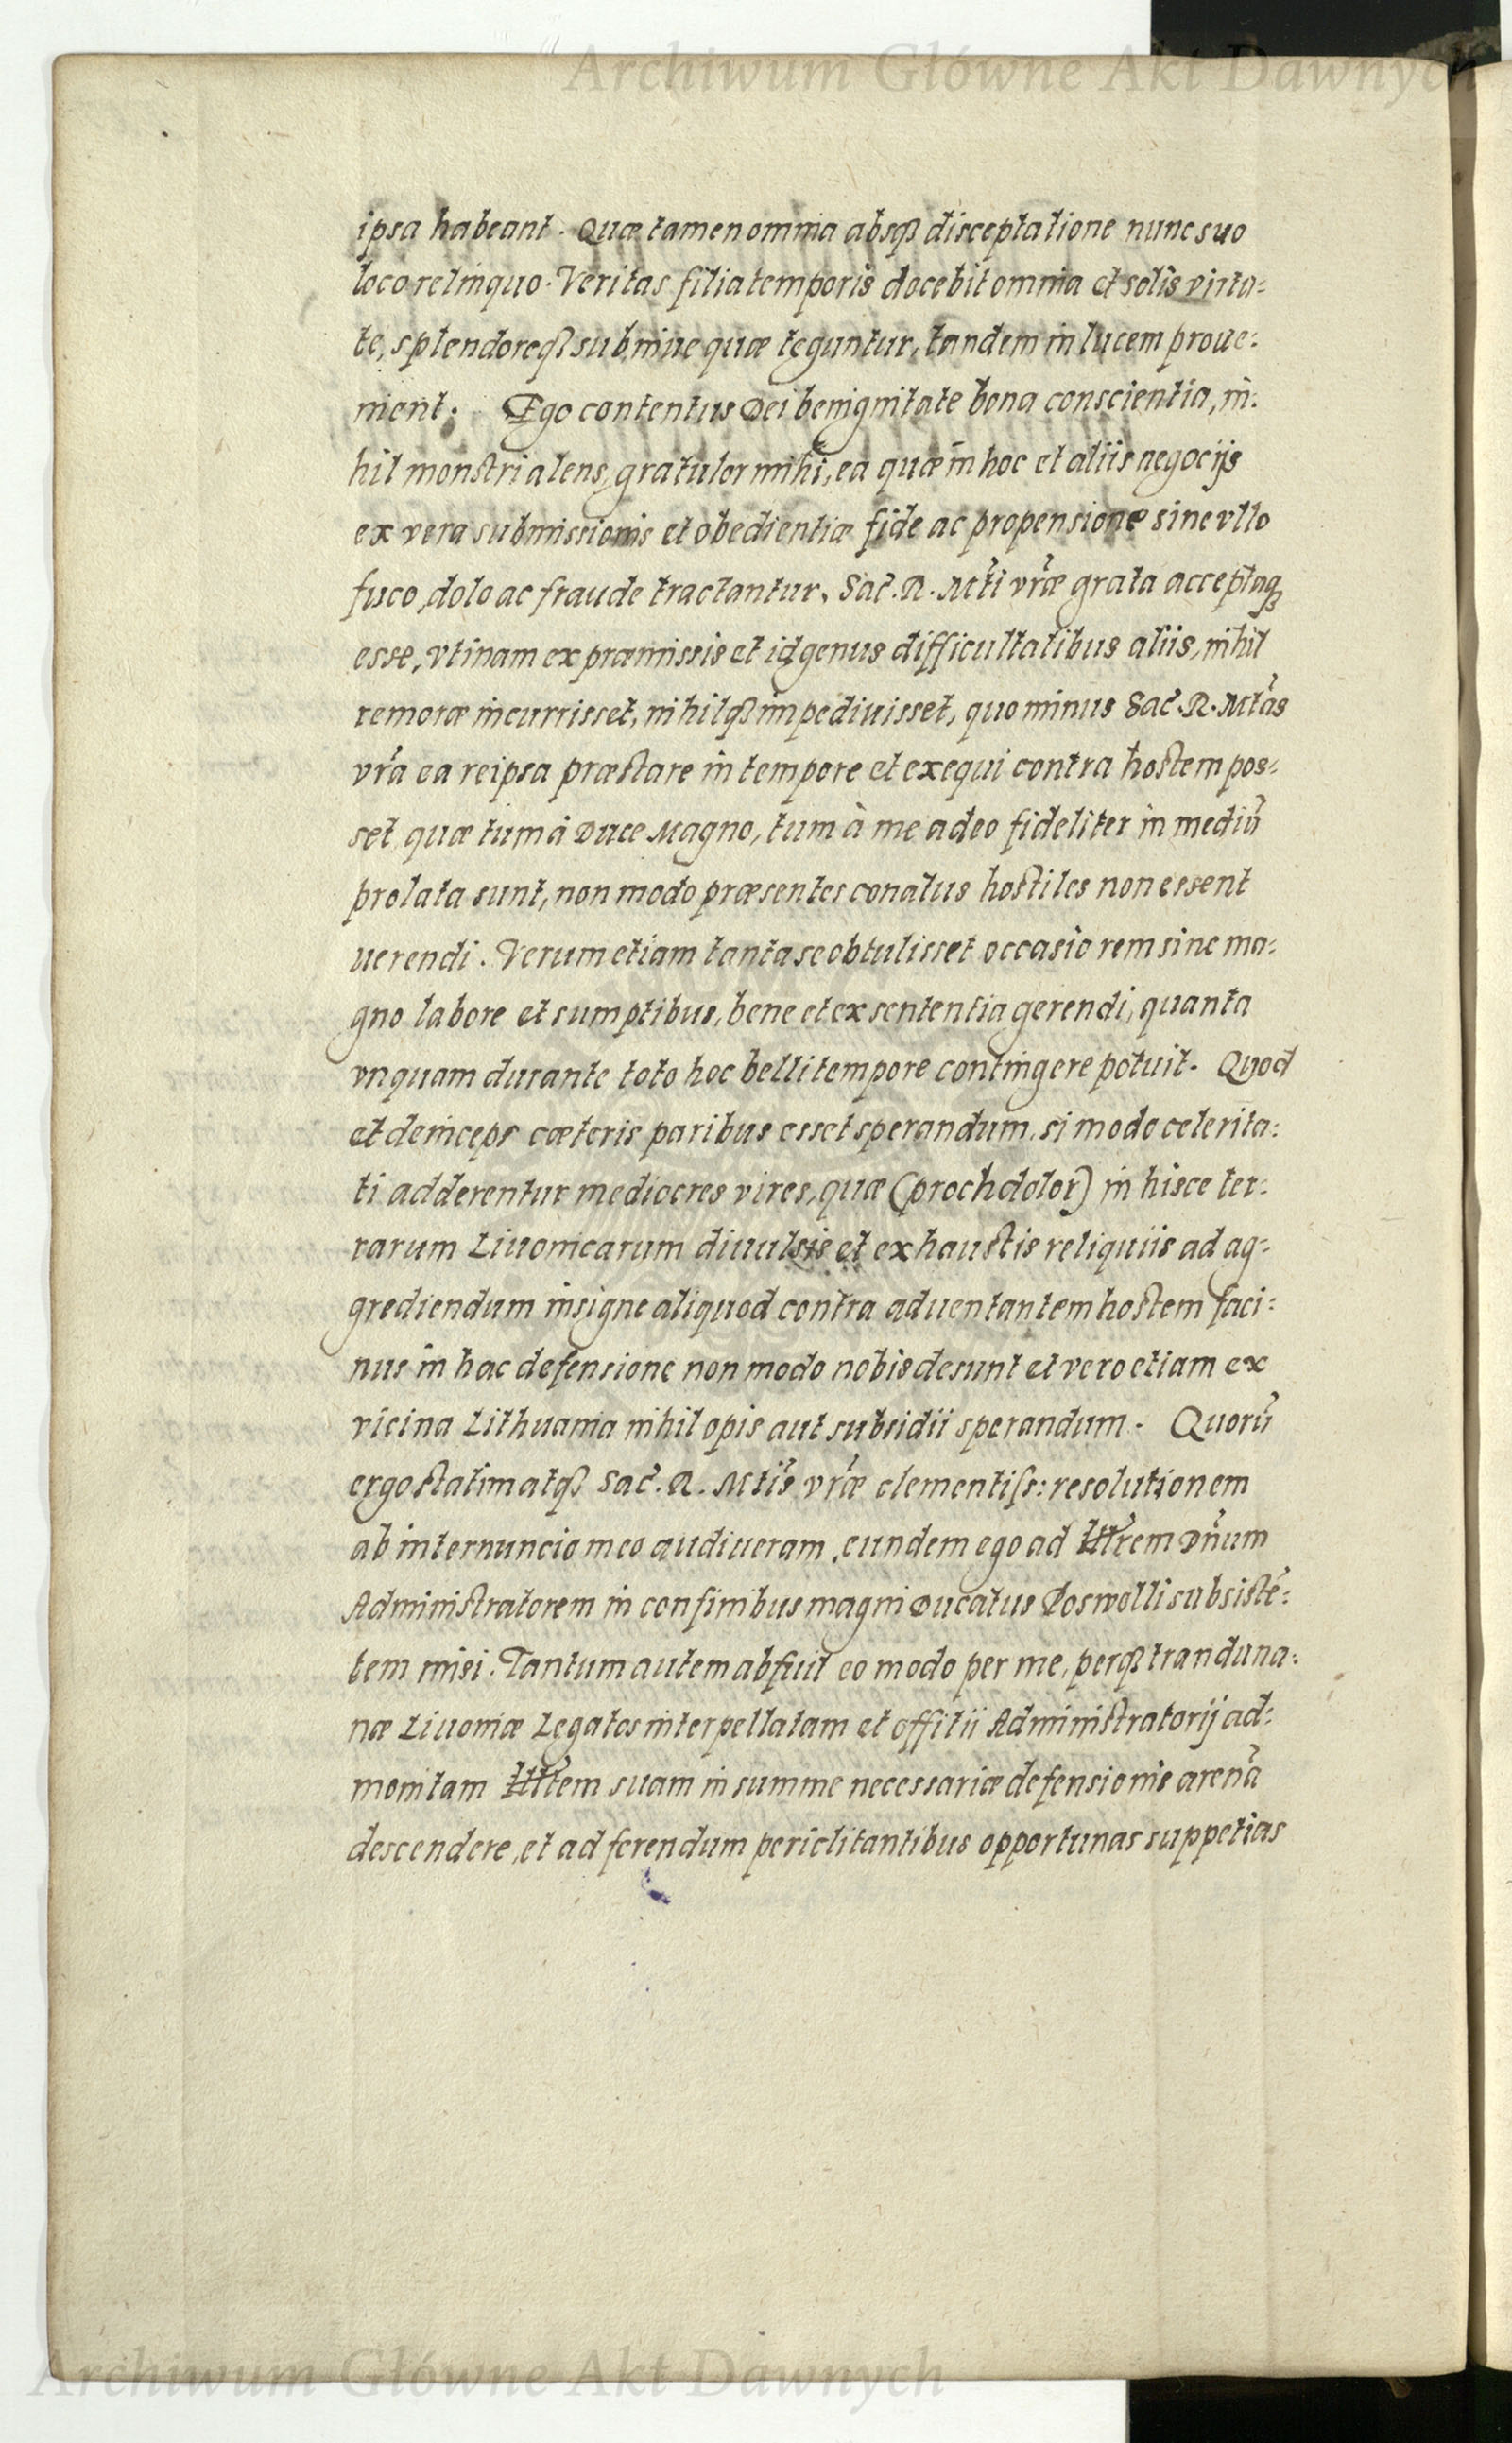 Archiwum Główne Akt Dawnych
ipsa habeant. Quæ tamen omnia absqȝ disceptatione nunc suo
loco relinquo. Veritas filia temporis docebit omnia et solis virtu=
te, splendoreqȝ sub niue quæ teguntur, tandem in lucem proue=
nient. Ego contentus Dei benignitate bona conscientia, ni=
hil monstri alens, gratulor mihi, ea quæ in hoc et aliis negocijs
ex vera submissionis et obedientiæ fide ac propensione sine vllo
fuco, dolo ac fraude tractantur, Sac. R. Mti vræ grata acceptaqȝ
esse, vtinam ex præmissis et id genus difficultatibus aliis, nihil
remoræ incurrisset, nihilqȝ impediuisset, quo minus Sac. R. Mtas
vra ea reipsa præstare in tempore et exequi contra hostem pos=
set, quæ tum à Duce Magno, tum à me adeo fideliter in mediū
prolata sunt, non modo præsentes conatus hostiles non essent
uerendi. Verum etiam tanta se obtulisset occasio rem sine ma=
gno labore et sumptibus, bene et ex sententia gerendi, quanta
vnquam durante toto hoc belli tempore contingere potuit. Quod
et deinceps cæteris paribus esset sperandum, si modo celerita=
ti adderentur mediocres vires, quæ (proch dolor) in hisce ter=
rarum Liuonicarum diuulsis et exhaustis reliquiis ad ag=
grediendum insigne aliquod contra aduentantem hostem faci=
nus in hac defensione non modo nobis desunt et vero etiam ex
vicina Lithuania nihil opis aut subsidii sperandum. Quorū
ergo statim atqȝ Sac. R. Mtis vræ clementiss: resolutionem
ab internuncio meo audiueram, eundem ego ad Illtrem Dnum
Administratorem in confinibus magni Ducatus Poswolli subsistē=
tem misi. Tantum autem abfuit eo modo per me, perqȝ tranduna=
næ Liuoniæ Legatos interpellatam et offitii Administratorij ad=
monitam Illtem suam in summe necessariæ defensionis arenā
descendere, et ad ferendum periclitantibus opportunas suppetias
Archiwum Główne Akt Dawnych